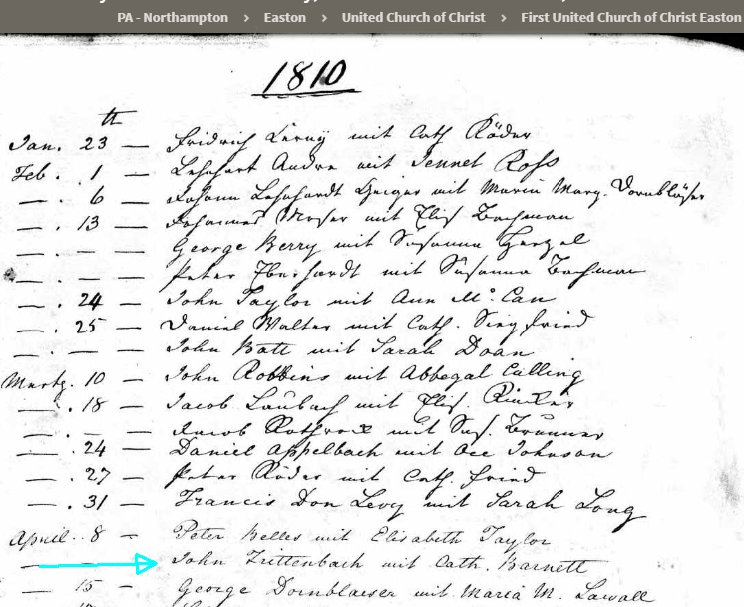 PA - Northampton > Easton > United Church of Christ > First United Church of Christ Easton
1810
th
Jan. 23 — Fridrich mit Cath Röder
Feb. . 1 — Lehnhart Andre mit Jennet Ross
— . 6 — Johann Lehnhardt Geiger mit Maria Marg. Dornblöser
— . 13 — Johannes Moser mit Elis Bachman
— . — — George Berry mit Susanna Hertzel
— . — — Peter Eberhardt mit Susanna Bachman
— . 24 — John Taylor mit Ann Mc. Can
— . 25 — Daniel Walter mit Cath. Siegfried
— . — — John Batt mit Sarah Doan
Martz. 10 — John Robbins mit Abbegal Culling
— . 18 — Jacob Laubach mit Elis.
— . — — Jacob Rothrock mit Sus. Brunner
— . 24 — Daniel Appelbach mit Johnson
— . 27 — Peter Röder mit Cath. Fried
— . 31 — Francis Don Levy mit Sarah Long
April . 8 — Peter Belles mit Elisabeth Taylor
— — John Trittenbach mit Cath. Barnett
— 15 — George Dornblaeser mit Maria M. Lawall